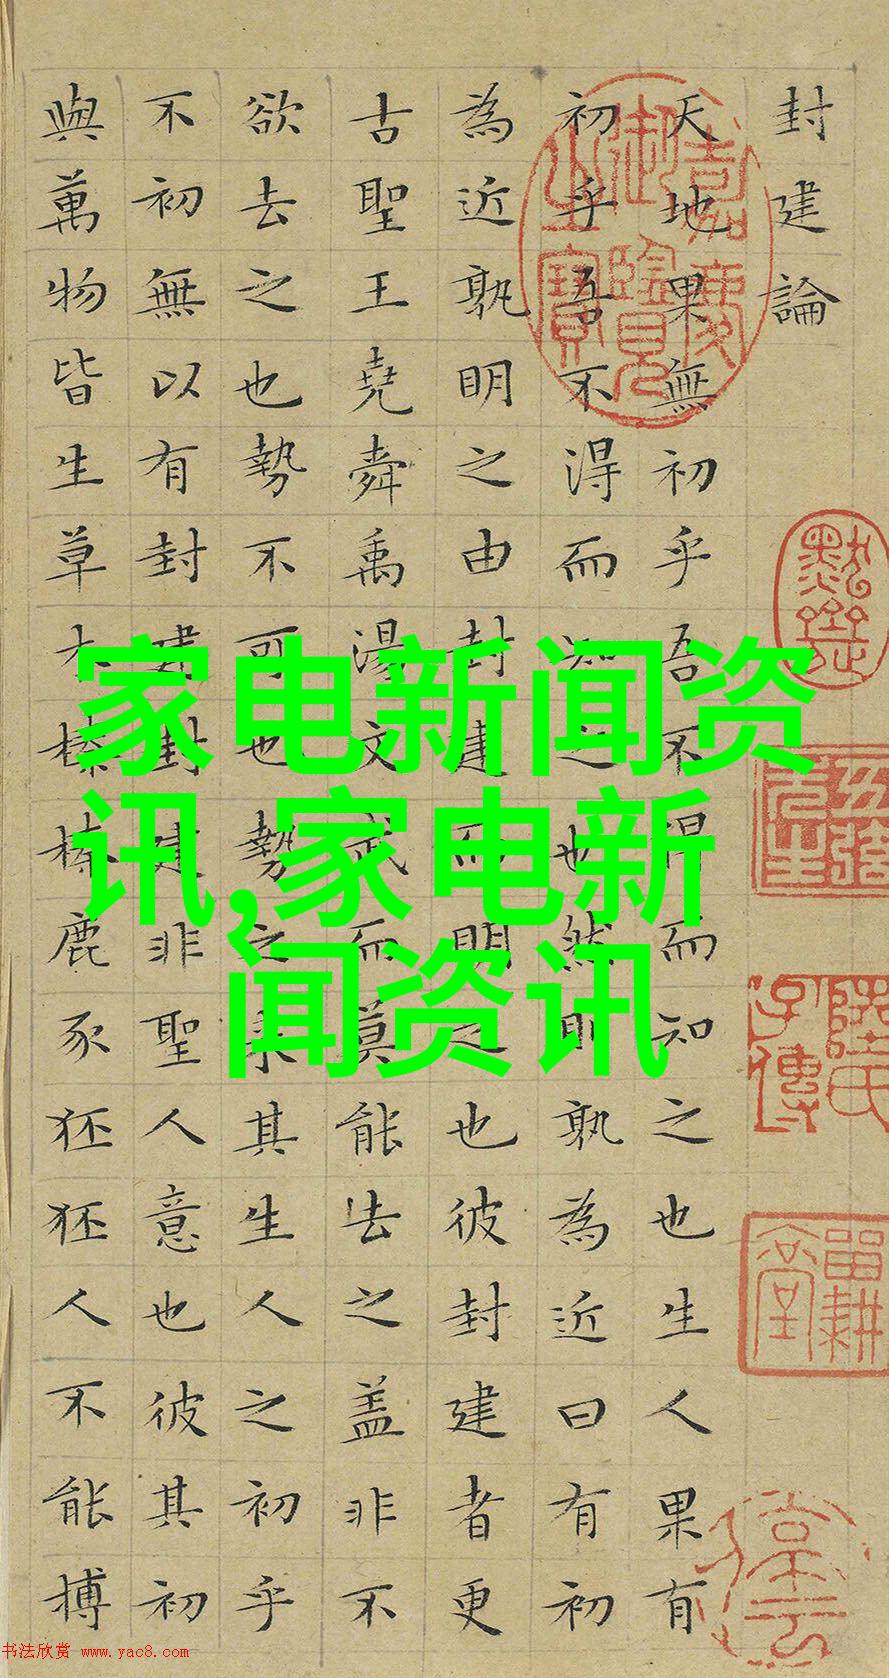 封建論
天地果無初乎吾不得而知之也生人果有
初乎吾不得而知之也然則孰為近曰有初
為近孰明之由封建而明之也彼封建者更
古聖王堯舜禹湯文武而莫能去之盖非不
欲去之也勢不可也勢之來其生人之初乎
不初無以有封建封建非聖人意也彼其初
與萬物皆生草木榛榛鹿豕狉狉人不能搏
嘉慶御覽之寶
陸氏子傳
畱耕堂
家电新闻资
讯,家电新
闻资讯
书法欣赏 www.yac8.com